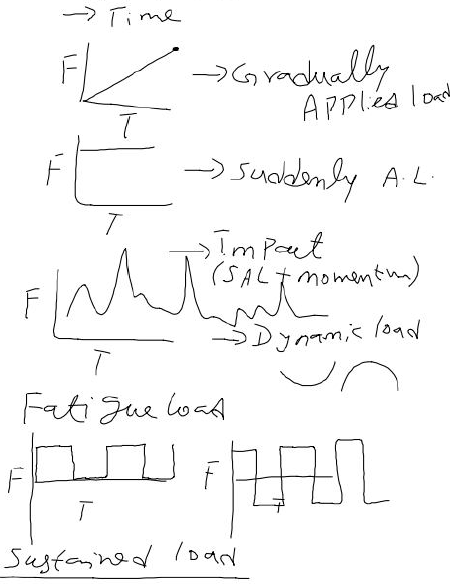 → Time
F
→ Gradually
Applied load
T
F
→ Suddenly A.L.
T
→ Impact
(SAL + momentum)
F
→ Dynamic load
T
Fatigue load
F
T
F
T
Sustained load